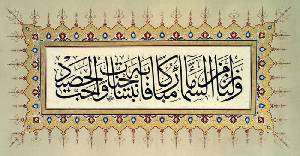 ونزلنا من السماء ماء مباركا فأنبتنا به جنات وحب الحصيد